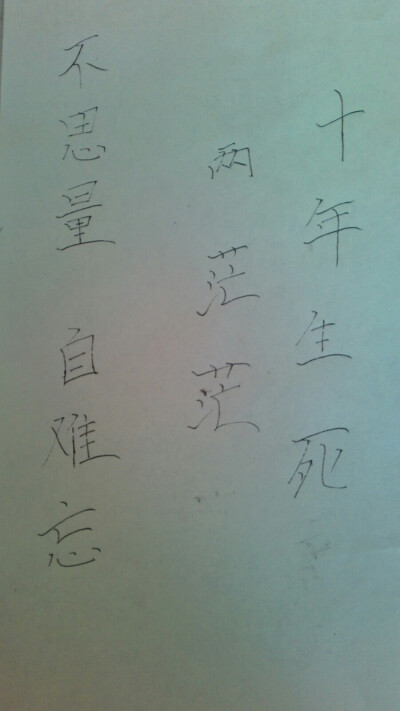 十年生死
两茫茫
不思量 自难忘